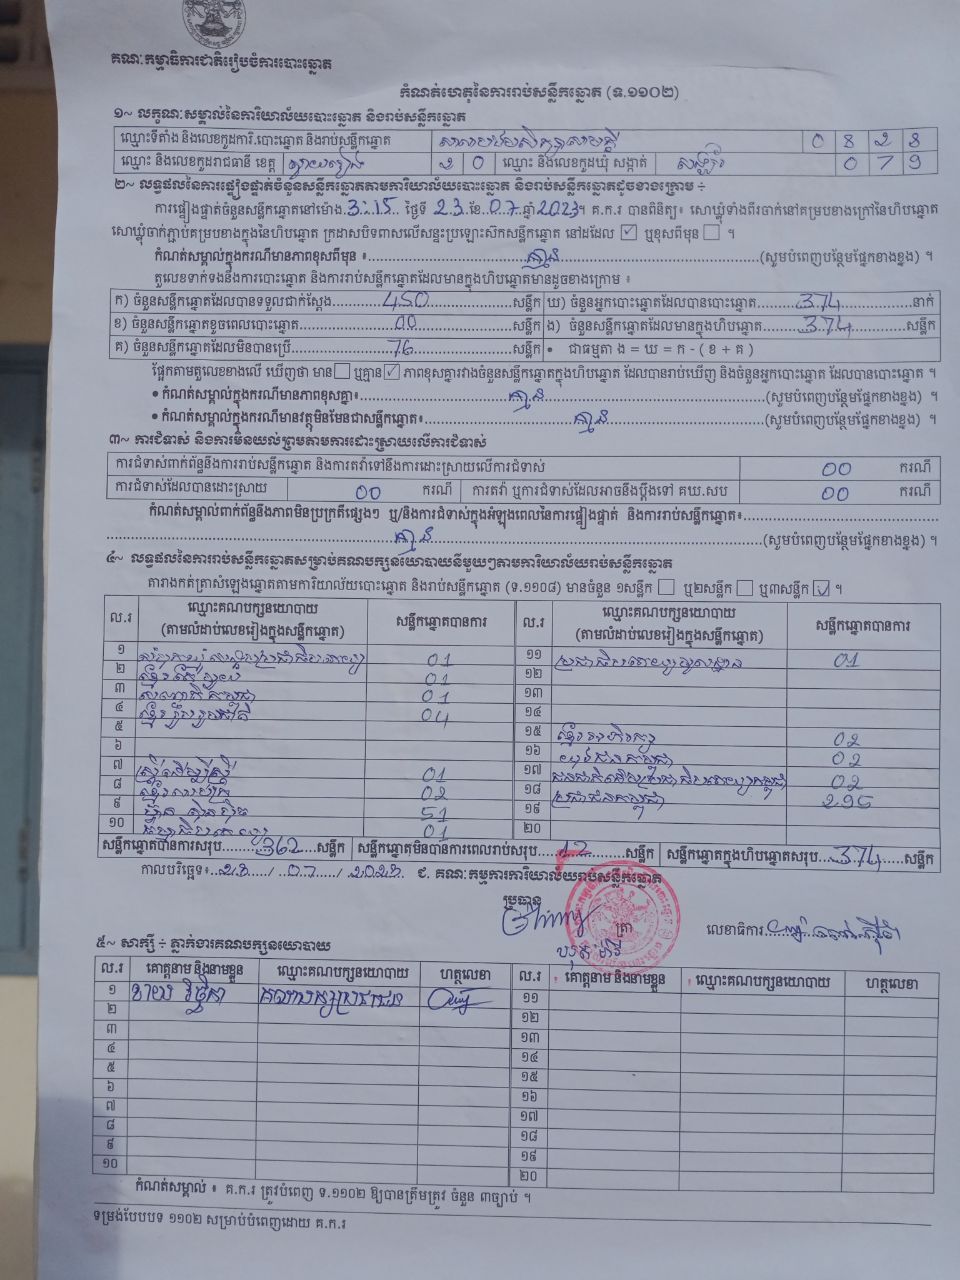 គណៈកម្មាធិការជាតិរៀបចំការបោះឆ្នោត
កំណត់ហេតុនៃការរាប់សន្លឹកឆ្នោត (ទ.១១០២)
១~ លក្ខណៈសម្គាល់នៃការិយាល័យបោះឆ្នោត និងរាប់សន្លឹកឆ្នោត
ឈ្មោះទីតាំង និងលេខកូដការិ.បោះឆ្នោត និងរាប់សន្លឹកឆ្នោត 0 8 2 8
ឈ្មោះ និងលេខកូដរាជធានី ខេត្ត ស្វាយរៀង 2 0 ឈ្មោះ និងលេខកូដឃុំ សង្កាត់ 0 7 9
២~ លទ្ធផលនៃការផ្ទៀងផ្ទាត់ចំនួនសន្លឹកឆ្នោតតាមការិយាល័យបោះឆ្នោត និងរាប់សន្លឹកឆ្នោតដូចខាងក្រោម ÷
ការផ្ទៀងផ្ទាត់ចំនួនសន្លឹកឆ្នោតនៅម៉ោង.3:15 ថ្ងៃទី 23 ខែ 07 ឆ្នាំ 2023។ គ.ក.រ បានពិនិត្យ៖ សោឃ្លុំទាំងពីរចាក់នៅគម្របខាងក្រៅនៃហិបឆ្នោត
សោឃ្លុំចាក់ភ្ជាប់គម្របខាងក្នុងនៃហិបឆ្នោត ក្រដាសបិទពាសលើសន្ទះប្រឡោះស៊កសន្លឹកឆ្នោត នៅដដែល ☑ ឬខុសពីមុន ☐ ។
កំណត់សម្គាល់ក្នុងករណីមានភាពខុសពីមុន ៖ គ្មាន (សូមបំពេញបន្ថែមផ្នែកខាងខ្នង) ។
តួលេខទាក់ទងនឹងការបោះឆ្នោត និងការរាប់សន្លឹកឆ្នោតដែលមានក្នុងហិបឆ្នោតមានដូចខាងក្រោម ៖
ក) ចំនួនសន្លឹកឆ្នោតដែលបានទទួលជាក់ស្តែង 450 សន្លឹក ឃ) ចំនួនអ្នកបោះឆ្នោតដែលបានបោះឆ្នោត 374 នាក់
ខ) ចំនួនសន្លឹកឆ្នោតខូចពេលបោះឆ្នោត 00 សន្លឹក ង) ចំនួនសន្លឹកឆ្នោតដែលមានក្នុងហិបឆ្នោត 374 សន្លឹក
គ) ចំនួនសន្លឹកឆ្នោតដែលមិនបានប្រើ 76 សន្លឹក • ជាធម្មតា ង = ឃ = ក - ( ខ + គ )
ផ្អែកតាមតួលេខខាងលើ ឃើញថា មាន ☐ ឬគ្មាន ☑ ភាពខុសគ្នារវាងចំនួនសន្លឹកឆ្នោតក្នុងហិបឆ្នោត ដែលបានរាប់ឃើញ និងចំនួនអ្នកបោះឆ្នោត ដែលបានបោះឆ្នោត ។
• កំណត់សម្គាល់ក្នុងករណីមានភាពខុសគ្នា៖ គ្មាន (សូមបំពេញបន្ថែមផ្នែកខាងខ្នង) ។
• កំណត់សម្គាល់ក្នុងករណីមានវត្ថុមិនមែនជាសន្លឹកឆ្នោត៖ គ្មាន (សូមបំពេញបន្ថែមផ្នែកខាងខ្នង) ។
៣~ ការជំទាស់ និងការមិនយល់ព្រមតាមការដោះស្រាយលើការជំទាស់
ការជំទាស់ពាក់ព័ន្ធនឹងការរាប់សន្លឹកឆ្នោត និងការតវ៉ាទៅនឹងការដោះស្រាយលើការជំទាស់ 00 ករណី
ការជំទាស់ដែលបានដោះស្រាយ 00 ករណី ការតវ៉ា ឬការជំទាស់ដែលអាចនឹងប្តឹងទៅ គឃ.សប 00 ករណី
កំណត់សម្គាល់ពាក់ព័ន្ធនឹងភាពមិនប្រក្រតីផ្សេងៗ ឬ/និងការជំទាស់ក្នុងអំឡុងពេលនៃការផ្ទៀងផ្ទាត់ និងការរាប់សន្លឹកឆ្នោត៖
គ្មាន (សូមបំពេញបន្ថែមផ្នែកខាងខ្នង) ។
៤~ លទ្ធផលនៃការរាប់សន្លឹកឆ្នោតសម្រាប់គណបក្សនយោបាយនីមួយៗតាមការិយាល័យរាប់សន្លឹកឆ្នោត
តារាងកត់ត្រាសំឡេងឆ្នោតតាមការិយាល័យបោះឆ្នោត និងរាប់សន្លឹកឆ្នោត (ទ.១១០៨) មានចំនួន ១សន្លឹក ☐ ឬ២សន្លឹក ☐ ឬ៣សន្លឹក ☑ ។
ល.រ ឈ្មោះគណបក្សនយោបាយ (តាមលំដាប់លេខរៀងក្នុងសន្លឹកឆ្នោត) សន្លឹកឆ្នោតបានការ ល.រ ឈ្មោះគណបក្សនយោបាយ (តាមលំដាប់លេខរៀងក្នុងសន្លឹកឆ្នោត) សន្លឹកឆ្នោតបានការ
១ 01 ១១ 01
២ 01 ១២
៣ 01 ១៣
៤ 04 ១៤
៥ ១៥ 02
៦ ១៦ 02
៧ 01 ១៧ 02
៨ 02 ១៨ ប្រជាជនកម្ពុជា
៩ ហ៊្វុនស៊ិនប៉ិច 51 ១៩
១០ 01 ២០
សន្លឹកឆ្នោតបានការសរុប 362 សន្លឹក សន្លឹកឆ្នោតមិនបានការពេលរាប់សរុប 12 សន្លឹក សន្លឹកឆ្នោតក្នុងហិបឆ្នោតសរុប 374 សន្លឹក
កាលបរិច្ឆេទ៖ 23 / 07 / 2023 ជ. គណៈកម្មការការិយាល័យរាប់សន្លឹកឆ្នោត
ប្រធាន
ត្រា
លេខាធិការ
៥~ សាក្សី ÷ ភ្នាក់ងារគណបក្សនយោបាយ
ល.រ គោត្តនាម និងនាមខ្លួន ឈ្មោះគណបក្សនយោបាយ ហត្ថលេខា ល.រ គោត្តនាម និងនាមខ្លួន ឈ្មោះគណបក្សនយោបាយ ហត្ថលេខា
១ គណបក្សប្រជាជន ១១
២ ១២
៣ ១៣
៤ ១៤
៥ ១៥
៦ ១៦
៧ ១៧
៨ ១៨
៩ ១៩
១០ ២០
កំណត់សម្គាល់ ៖ គ.ក.រ ត្រូវបំពេញ ទ.១១០២ ឱ្យបានត្រឹមត្រូវ ចំនួន ៣ច្បាប់ ។
ទម្រង់បែបបទ ១១០២ សម្រាប់បំពេញដោយ គ.ក.រ